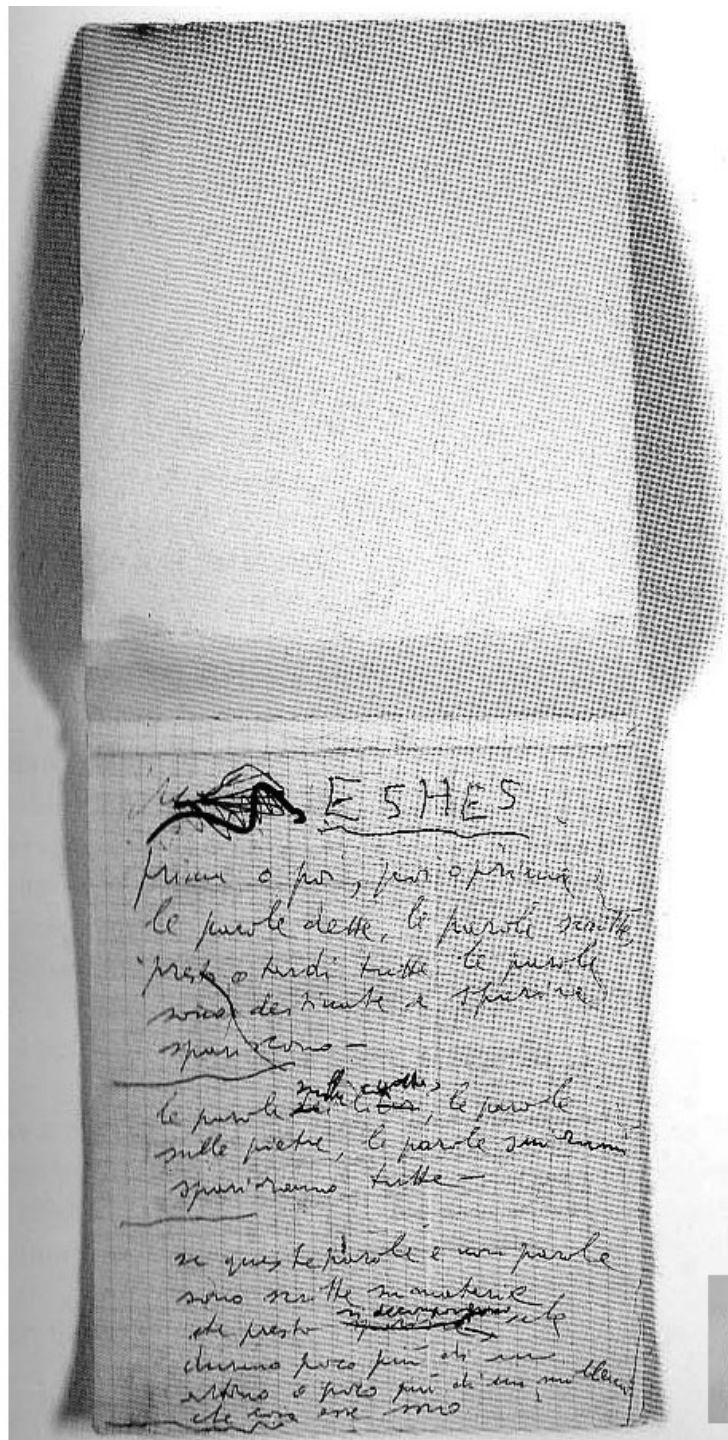 ESHES
prima o poi, poi o prima
le parole dette, le parole scritte,
presto o tardi tutte le parole
sono destinate a sparire
spariscono —
sulle
le parole, le parole
sulle pietre, le parole sui rami
spariranno tutte —
se queste parole e non parole
sono scritte su materie
che presto si decompongono, che
durano poco più di un
attimo o poco più di un
che cosa esse sono